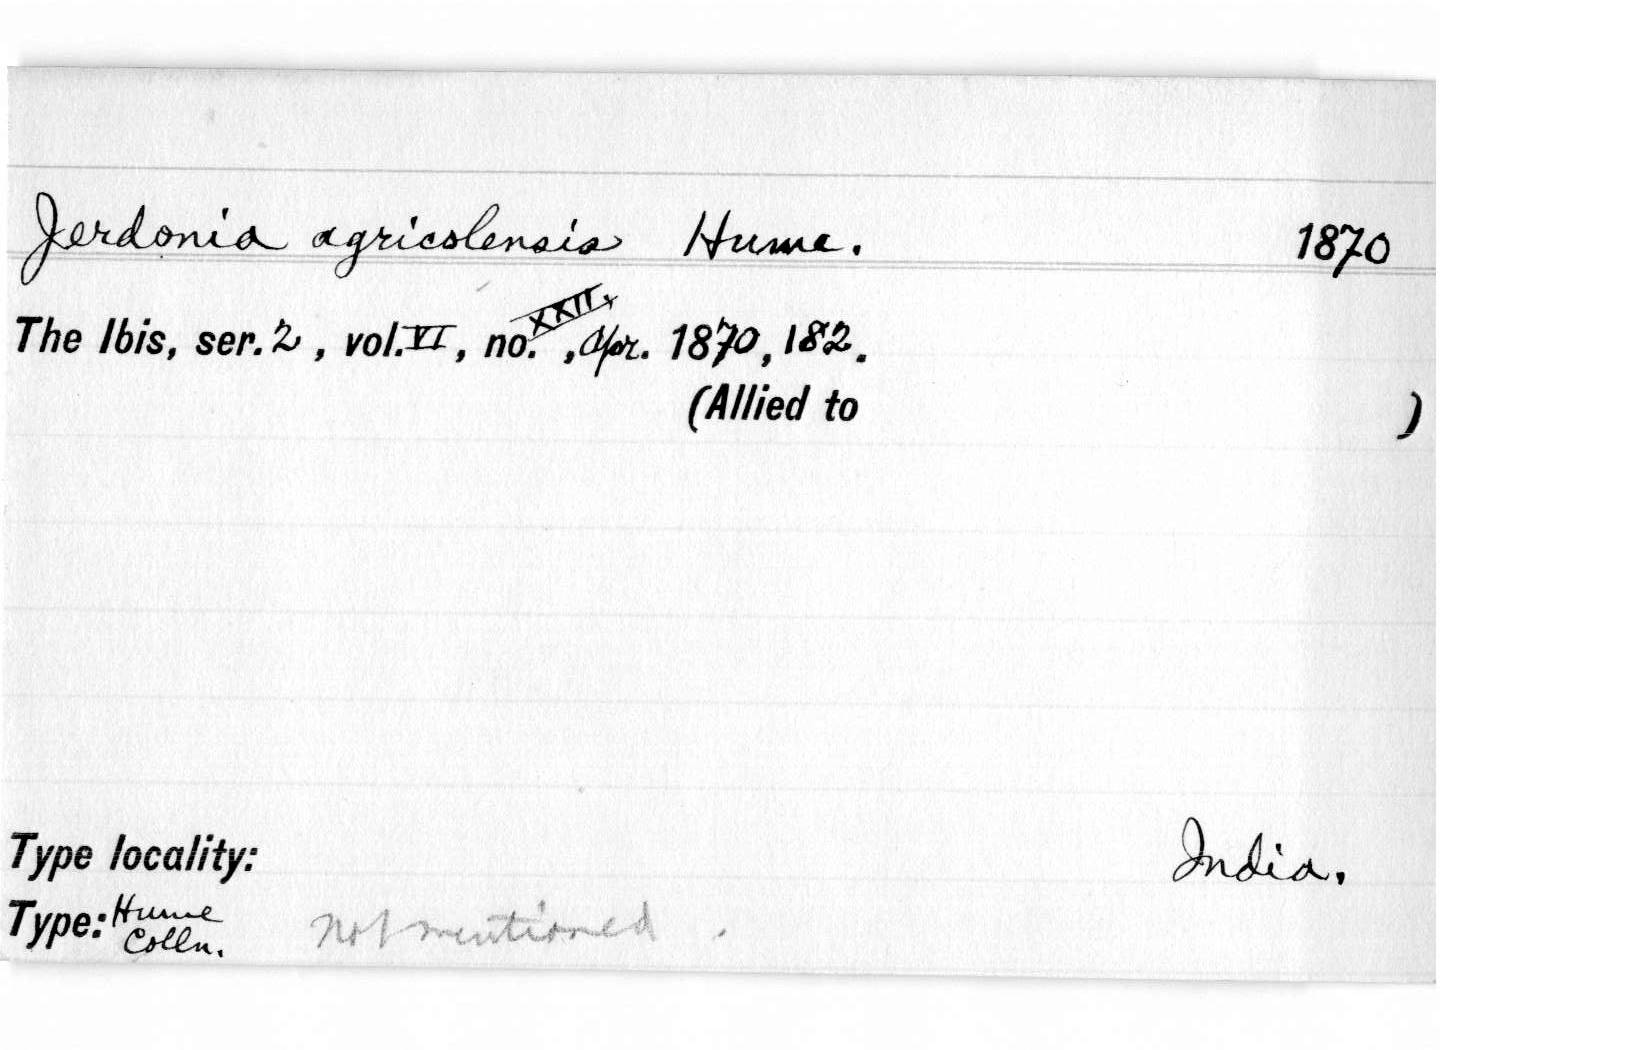 Jerdonia agricolensis Hume. 1870
The Ibis, ser. 2, vol. VI, no. XXII, Apr. 1870, 182.
(Allied to )
Type locality: India.
Type: Hume Colln. not mentioned.